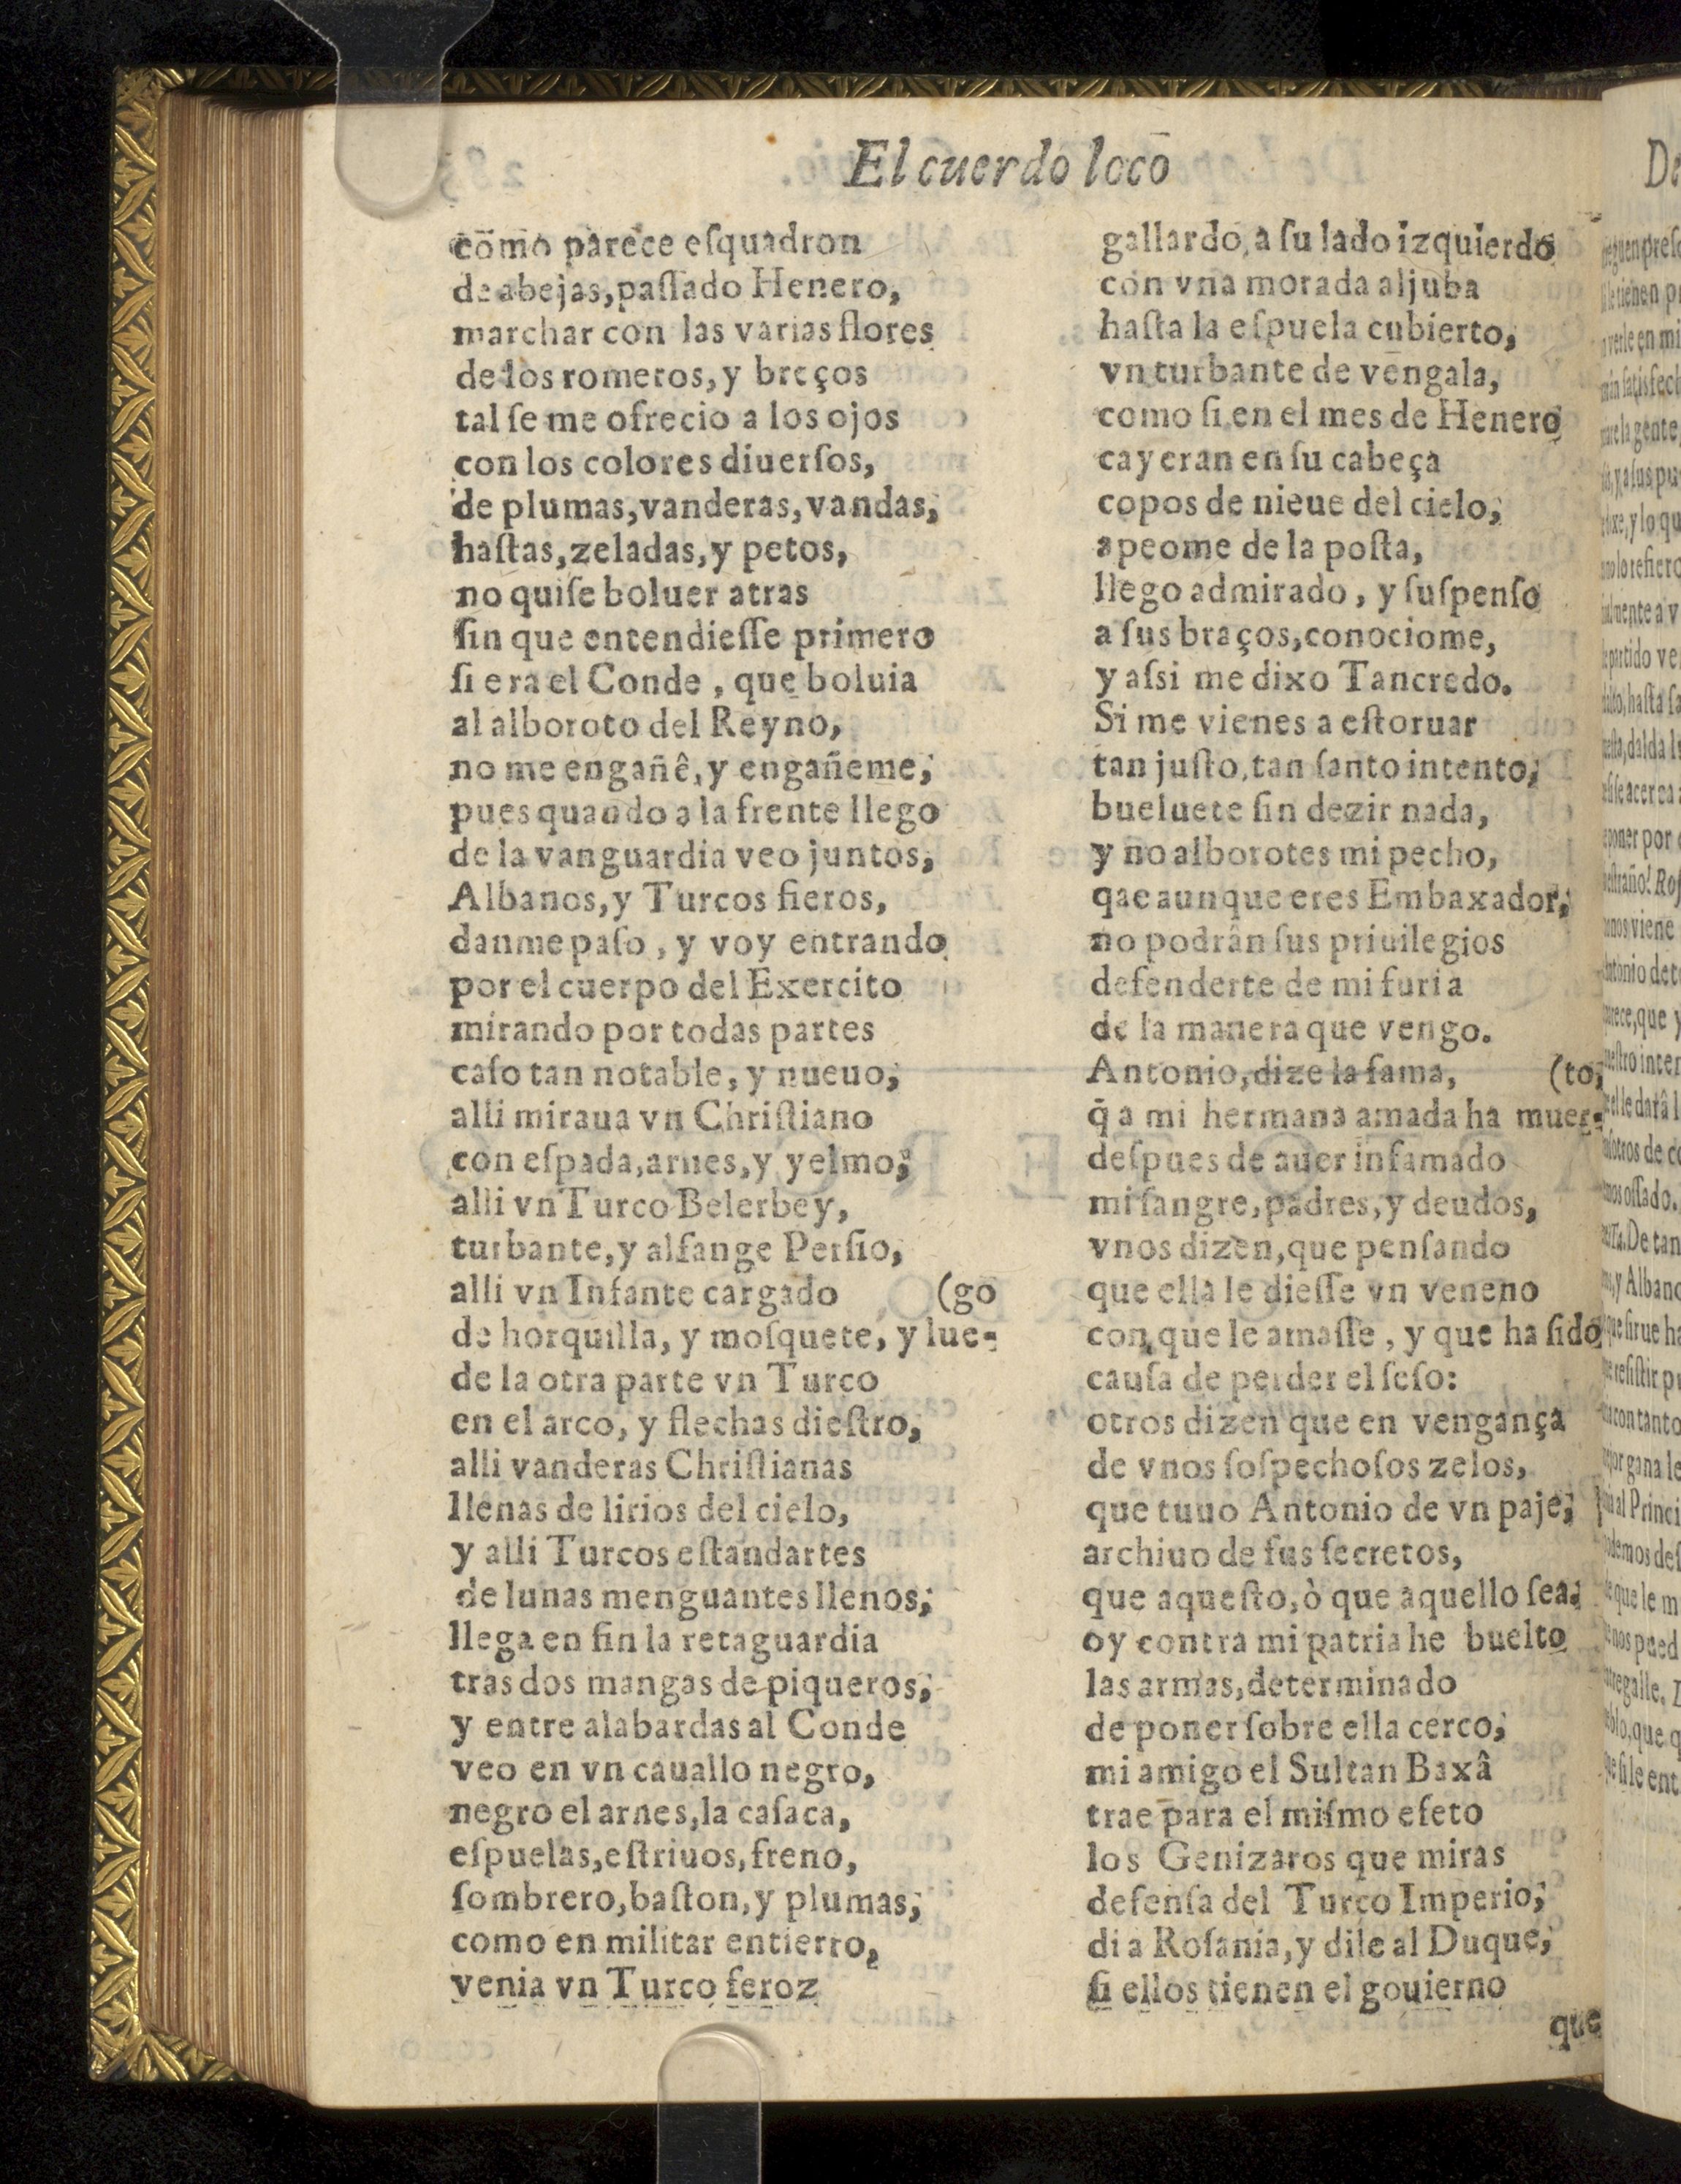 El cuerdo loco
como parece eſquadron
de abejas, paſſado Henero,
marchar con las varias flores
de los romeros, y breços
tal ſe me ofrecio a los ojos
con los colores diuerſos,
de plumas, vanderas, vandas,
haſtas, zeladas, y petos,
no quiſe boluer atras
ſin que entendieſſe primero
ſi era el Conde, que boluia
al alboroto del Reyno,
no me engañê, y engañeme,
pues quando a la frente llego
de la vanguardia veo juntos,
Albanos, y Turcos fieros,
danme paſo, y voy entrando
por el cuerpo del Exercito
mirando por todas partes
caſo tan notable, y nueuo,
alli miraua vn Chriſtiano
con eſpada, arnes, y yelmo,
alli vn Turco Belerbey,
turbante, y alfange Perſio,
alli vn Infante cargado (go
de horquilla, y moſquete, y lue-
de la otra parte vn Turco
en el arco, y flechas dieſtro,
alli vanderas Chriſtianas
llenas de lirios del cielo,
y alli Turcos eſtandartes
de lunas menguantes llenos,
llega en fin la retaguardia
tras dos mangas de piqueros,
y entre alabardas al Conde
veo en vn cauallo negro,
negro el arnes, la caſaca,
eſpuelas, eſtriuos, freno,
ſombrero, baſton, y plumas,
como en militar entierro,
venia vn Turco feroz
gallardo, a ſu lado izquierdo
con vna morada aljuba
haſta la eſpuela cubierto,
vn turbante de vengala,
como ſi en el mes de Henero
cayeran en ſu cabeça
copos de nieue del cielo,
apeome de la poſta,
llego admirado, y ſuſpenſo
a ſus braços, conociome,
y aſsi me dixo Tancredo.
Si me vienes a eſtoruar
tan juſto, tan ſanto intento,
bueluete ſin dezir nada,
y no alborotes mi pecho,
qae aunque eres Embaxador,
no podrân ſus priuilegios
defenderte de mi furia
de la manera que vengo.
Antonio, dize la fama, (to,
q̃ a mi hermana amada ha muer-
deſpues de auer infamado
mi ſangre, padres, y deudos,
vnos dizen, que penſando
que ella le dieſſe vn veneno
con que le amaſſe, y que ha ſido
cauſa de perder el ſeſo:
otros dizen que en vengança
de vnos ſoſpechoſos zelos,
que tuuo Antonio de vn paje,
archiuo de ſus ſecretos,
que aqueſto, ò que aquello ſea.
oy contra mi patria he buelto
las armas, determinado
de poner ſobre ella cerco,
mi amigo el Sultan Baxâ
trae para el miſmo efeto
los Genizaros que miras
defenſa del Turco Imperio,
di a Roſania, y dile al Duque,
ſi ellos tienen el gouierno
que